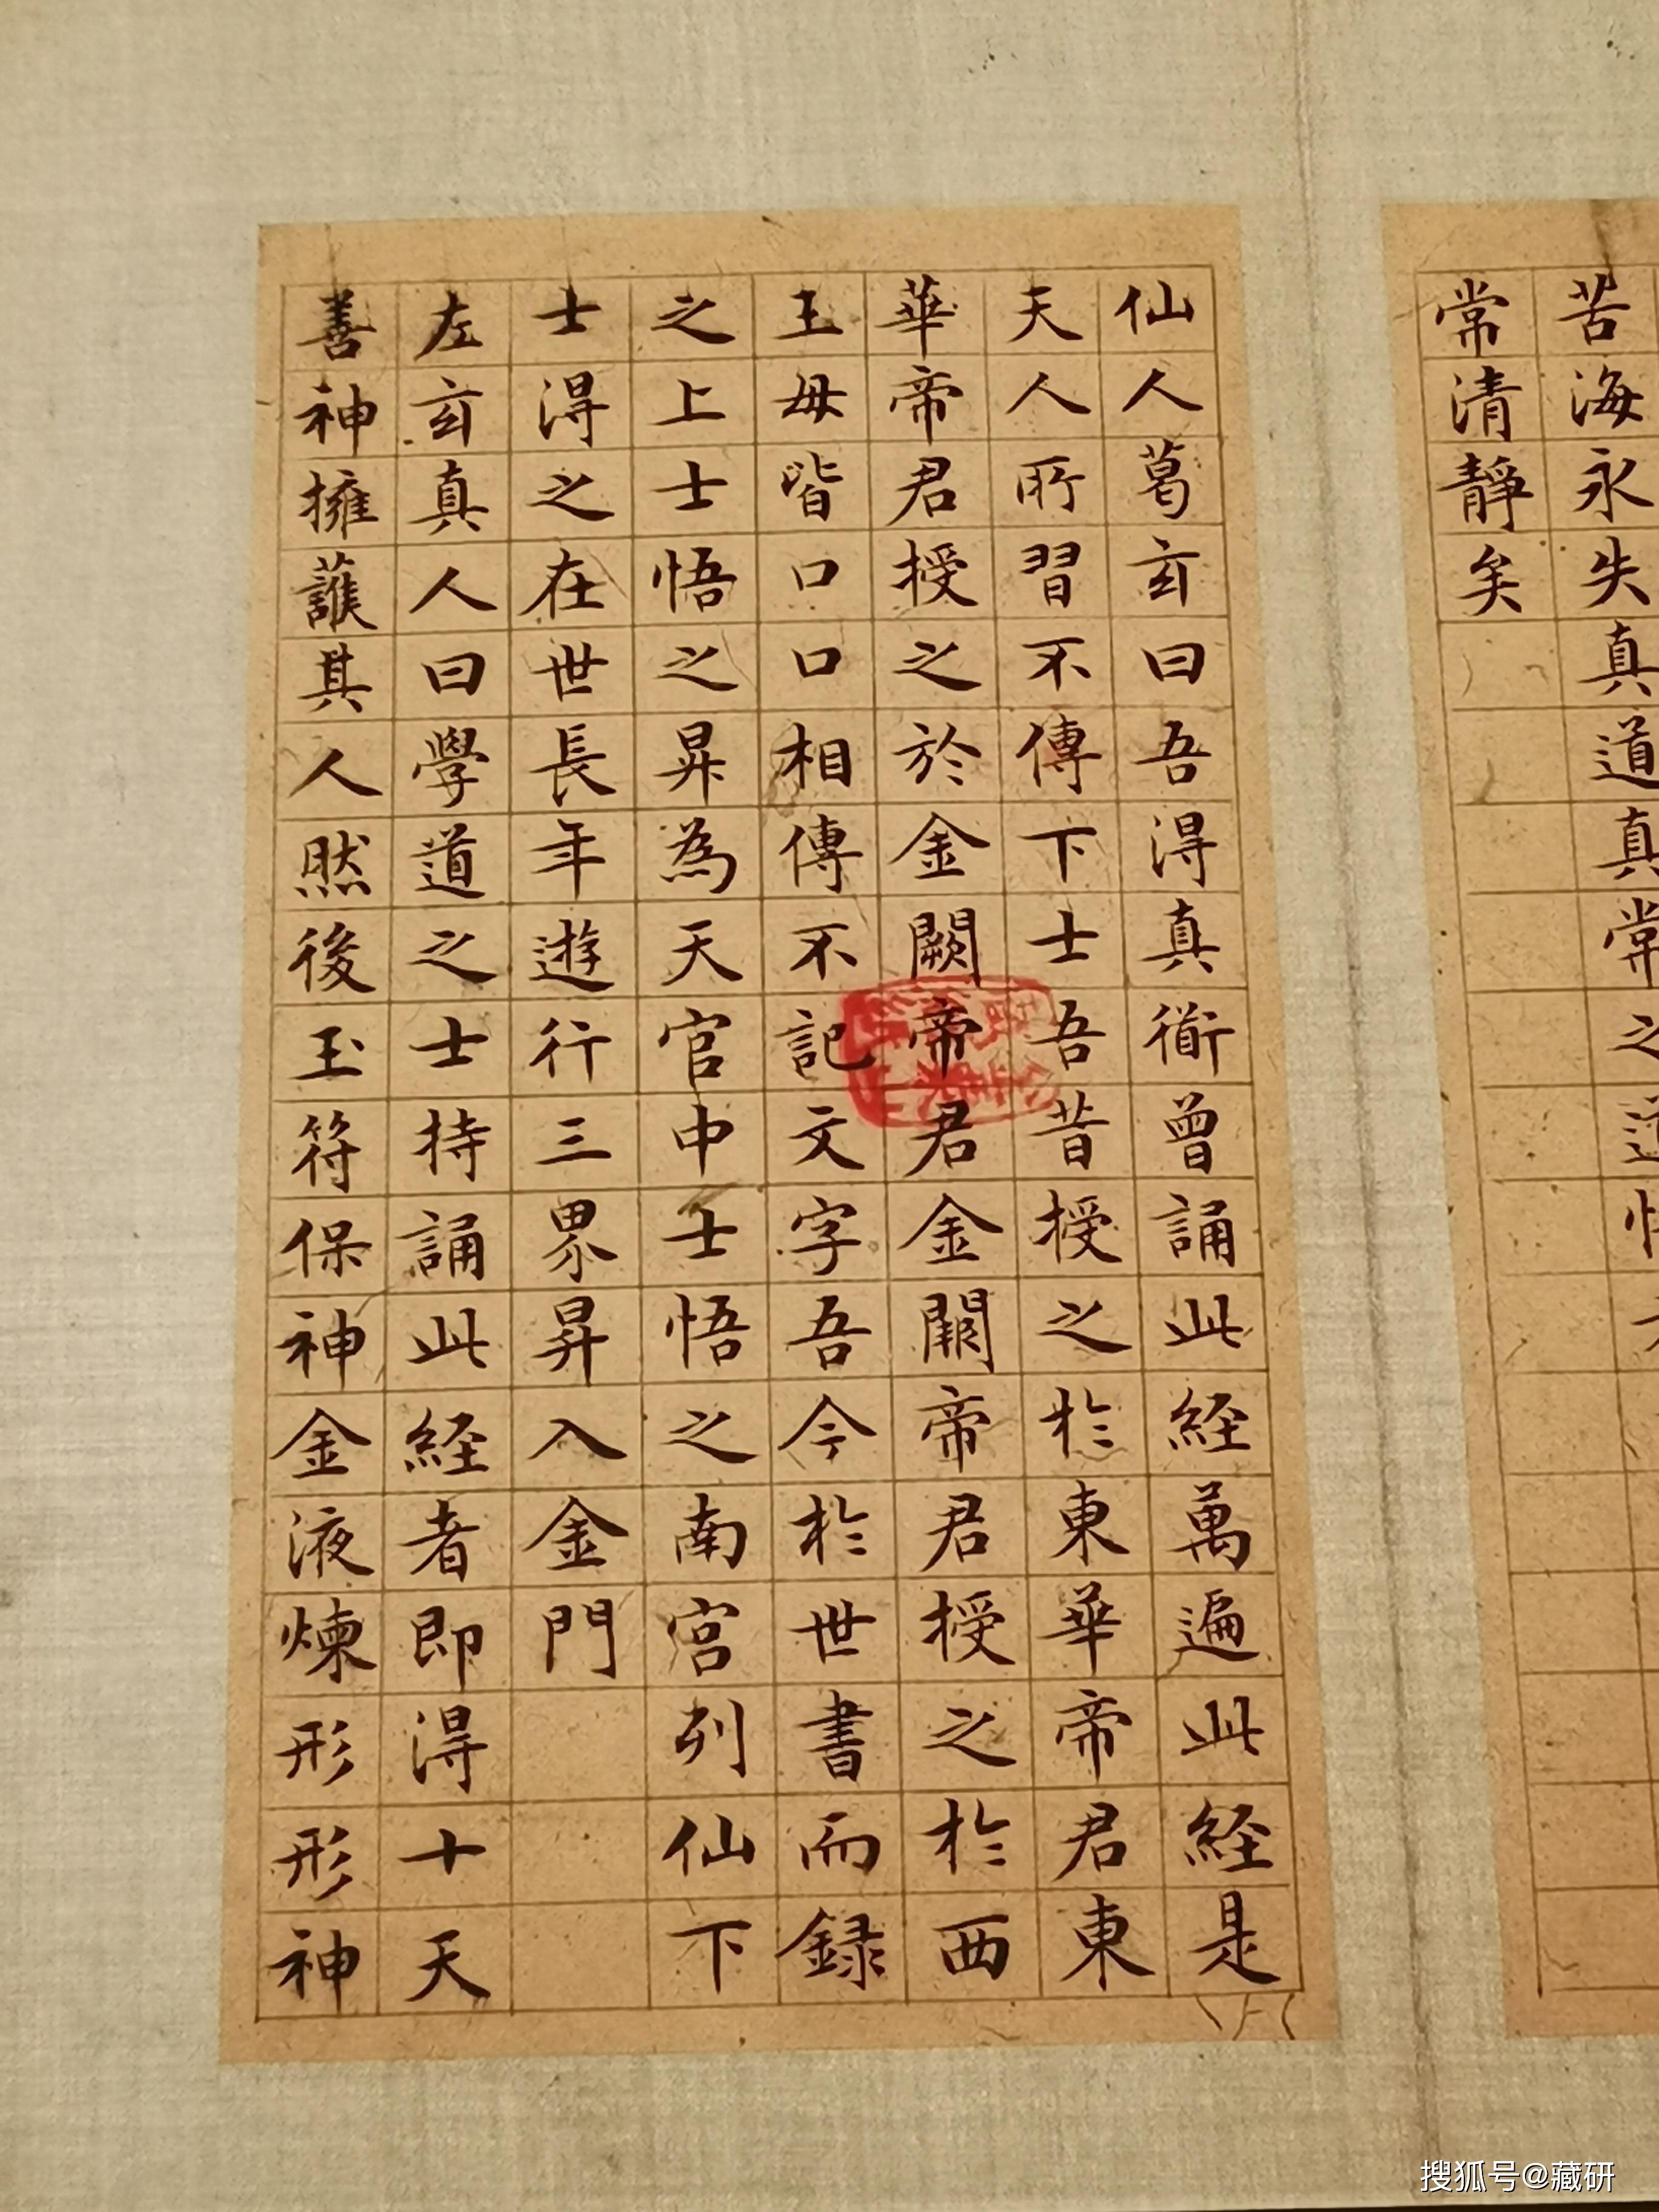 苦海永失真道真常之道悟
常清靜矣
仙人葛玄曰吾得真衜曾誦此経萬遍此経是
天人所習不傳下士吾昔授之於東華帝君東
華帝君授之於金闕帝君金闕帝君授之於西
王母皆口口相傳不記文字吾今於世書而録
之上士悟之昇為天官中士悟之南宮列仙下
士得之在世長年遊行三界昇入金門
左玄真人曰學道之士持誦此経者即得十天
善神擁護其人然後玉符保神金液煉形形神
搜狐号@藏研